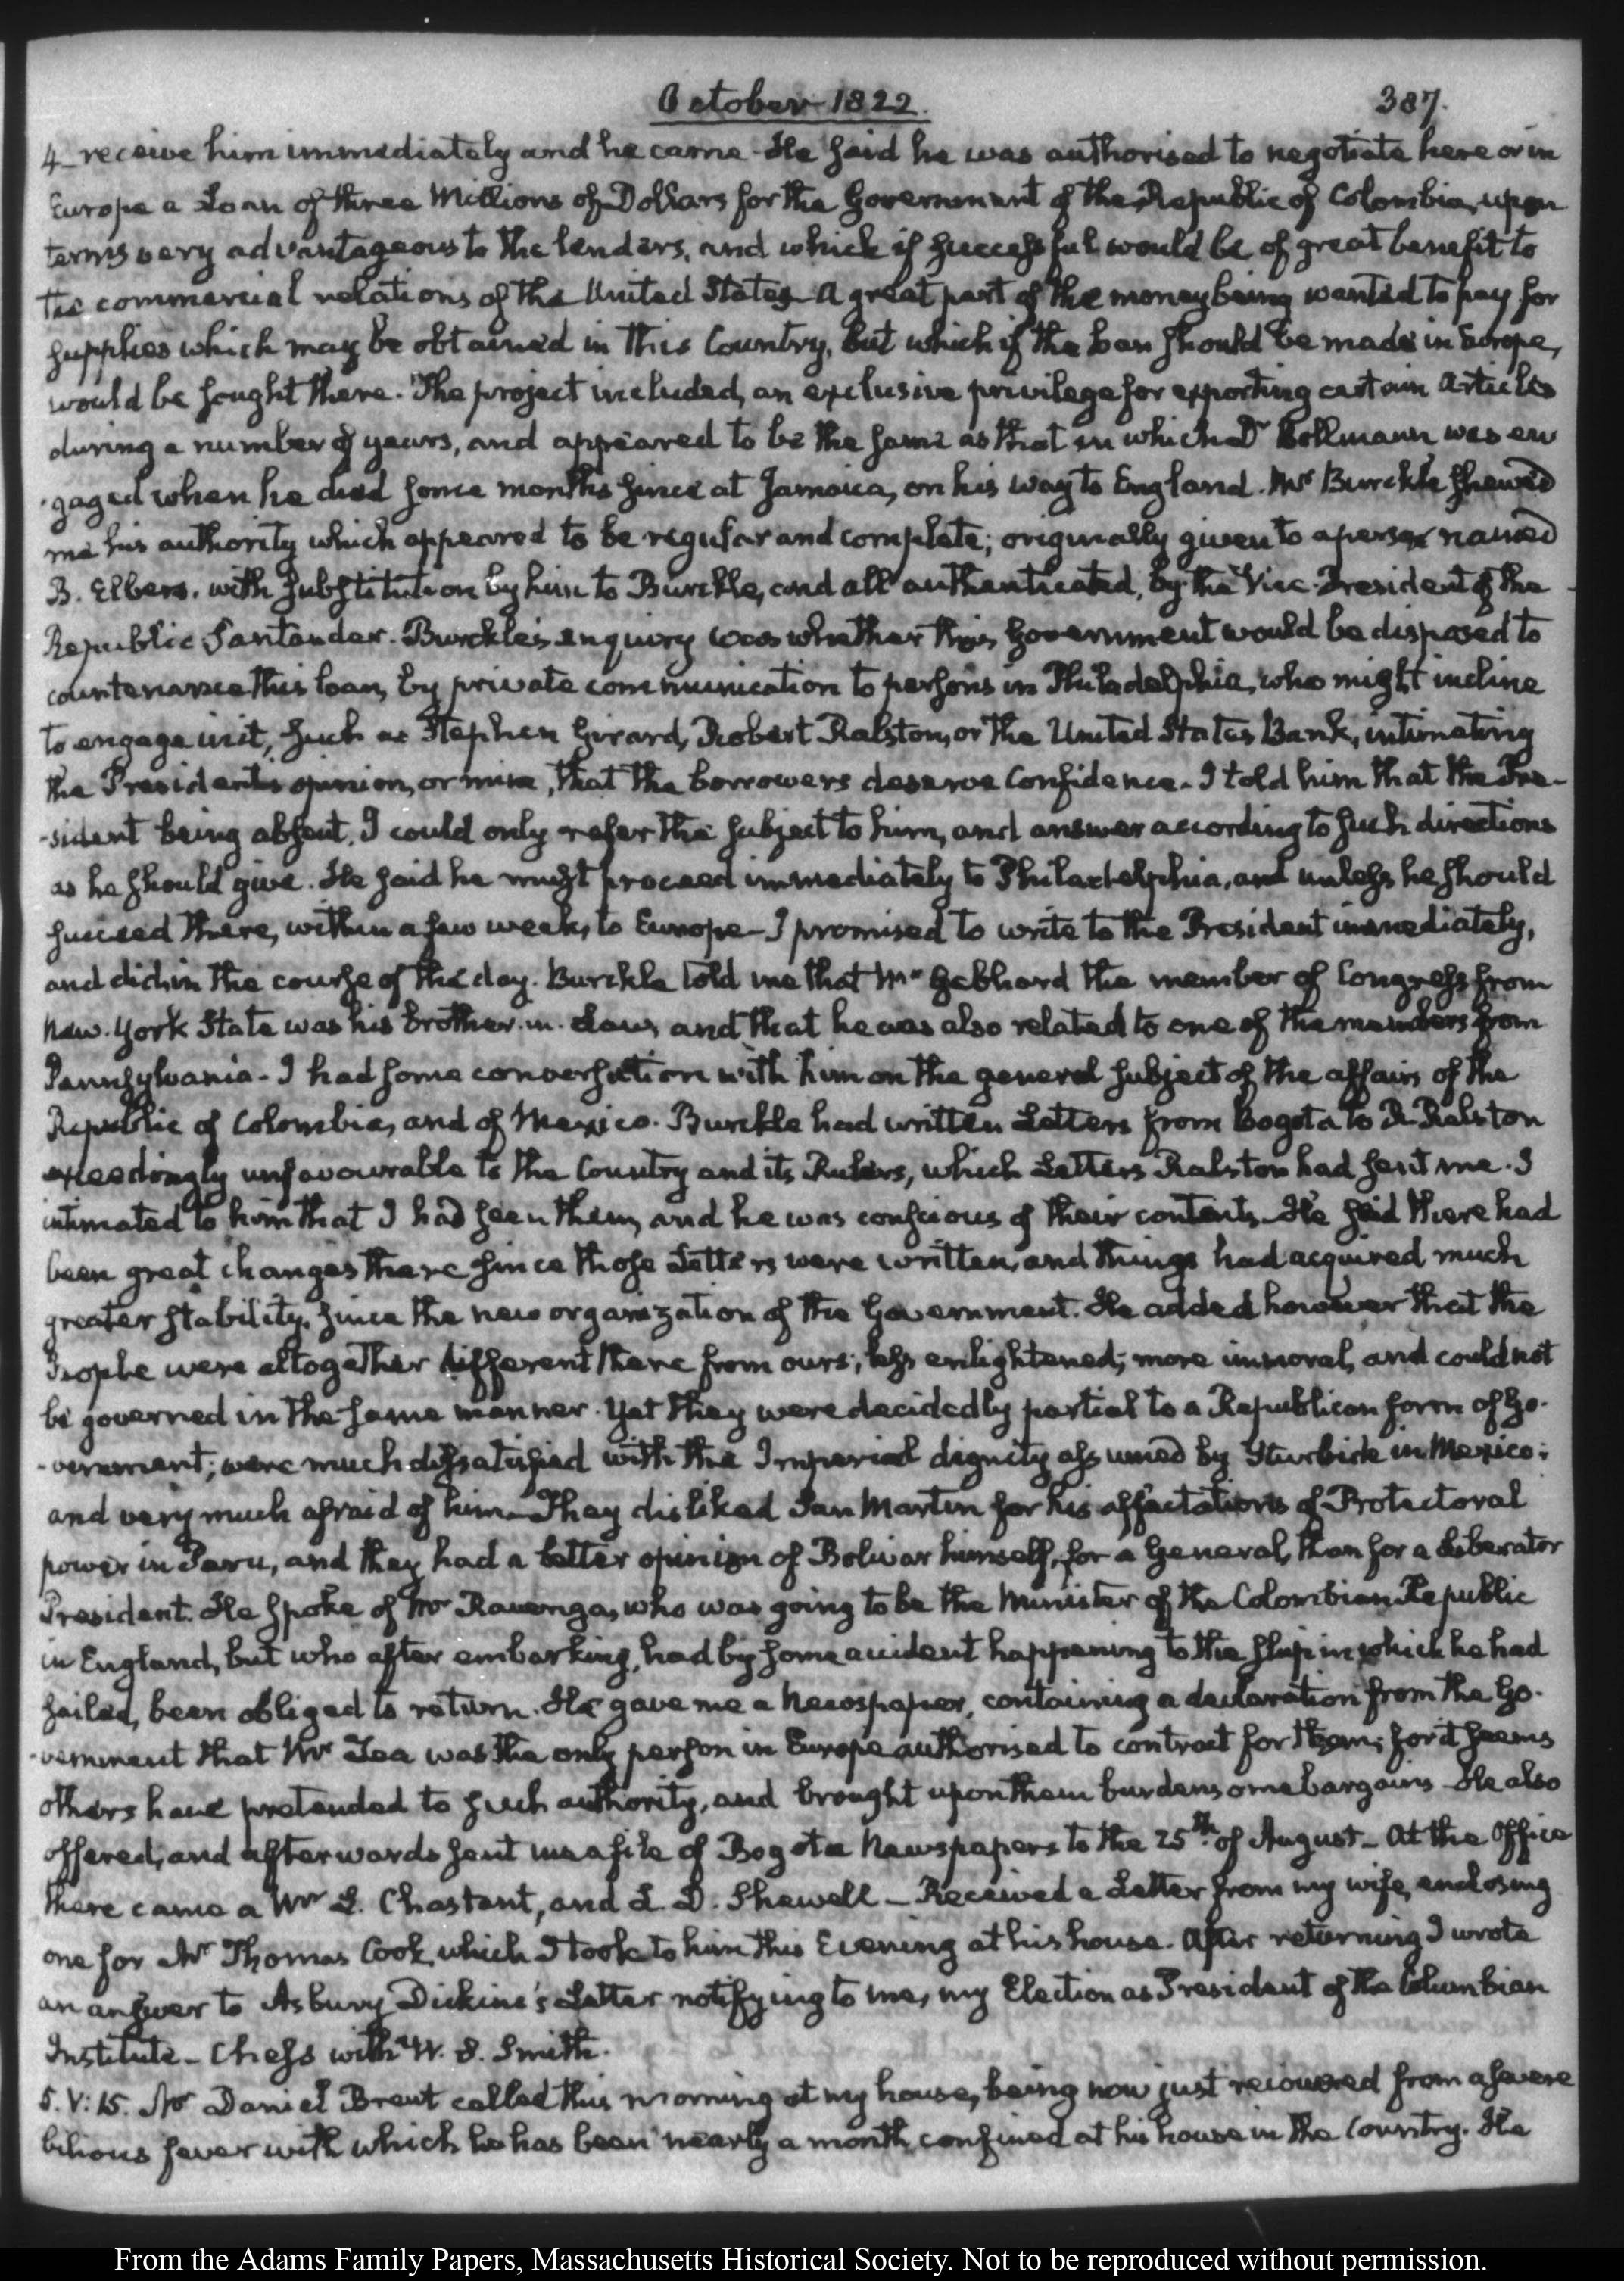 October 1822.
387.
4_ receive him immediately and he came - He said he was authorised to negotiate here or in
Europe a Loan of three Millions of Dollars for the Government of the Republic of Colombia, upon
terms very advantageous to the lenders, and which if successful would be of great benefit to
the commercial relations of the United States_ A great part of the money being wanted to pay for
supplies which may be obtained in this Country, but which if the loan should be made in Europe,
would be sought there. The project included, an exclusive privilege for exporting certain Articles
during a number of years, and appeared to be the same as that in which Dr Bollmann was en
-gaged when he died some months since at Jamaica, on his way to England. Mr Burckle shewed
me his authority which appeared to be regular and complete; originally given to a person named
B. Elbers, with substitution by him to Burckle, and all authenticated, by the Vice-President of the
Republic Santander. Burckle's enquiry was whether this Government would be disposed to
countenance this loan, by private communication to persons in Philadelphia, who might incline
to engage in it, such as Stephen Girard, Robert Ralston, or the United States Bank, intimating
the President's opinion, or mine, that the borrowers deserve Confidence - I told him that the Pre-
-sident being absent, I could only refer the subject to him, and answer according to such directions
as he should give. He said he must proceed immediately to Philadelphia, and unless he should
succeed there, within a few weeks, to Europe - I promised to write to the President immediately,
and did in the course of the day. Burckle told me that Mr Gebhard the member of Congress from
New-York State was his brother-in-law, and that he was also related to one of the members from
Pennsylvania - I had some conversation with him on the general subject of the affairs of the
Republic of Colombia, and of Mexico. Burckle had written Letters from Bogota to R. Ralston
exceedingly unfavourable to the Country and its Rulers, which Letters Ralston had sent me. I
intimated to him that I had seen them, and he was conscious of their contents_ He said there had
been great changes there since those Letters were written, and things had acquired much
greater stability, since the new organization of the Government. He added however that the
People were altogether different there from ours; less enlightened; more immoral, and could not
be governed in the same manner. Yet they were decidedly partial to a Republican form of Go-
-vernment; were much dissatisfied with the Imperial dignity assumed by Iturbide in Mexico;
and very much afraid of him - They disliked San Martin for his affectations of Protectoral
power in Peru, and they had a better opinion of Bolivar himself, for a General, than for a Liberator
President. He spoke of Mr Ravenga, who was going to be the Minister of the Colombian Republic
in England, but who after embarking, had by some accident happening to the ship in which he had
sailed, been obliged to return. He gave me a Newspaper, containing a declaration from the Go-
-vernment that Mr Zea was the only person in Europe authorised to contract for them; for it seems
others have pretended to such authority, and brought upon them burdensome bargains - He also
offered, and afterwards sent me a file of Bogota Newspapers to the 25th of August_ At the Office
there came a Mr L. Chastant, and L. D. Shewell_ Received a Letter from my wife, enclosing
one for Mr Thomas Cook, which I took to him this Evening at his house. After returning I wrote
an answer to Asbury Dickins's Letter notifying to me, my Election as President of the Columbian
Institute_ Chess with W. S. Smith.
5. V: 15. Mr Daniel Brent called this morning at my house, being now just recovered from a severe
bilious fever with which he has been nearly a month confined at his house in the Country. He
From the Adams Family Papers, Massachusetts Historical Society. Not to be reproduced without permission.